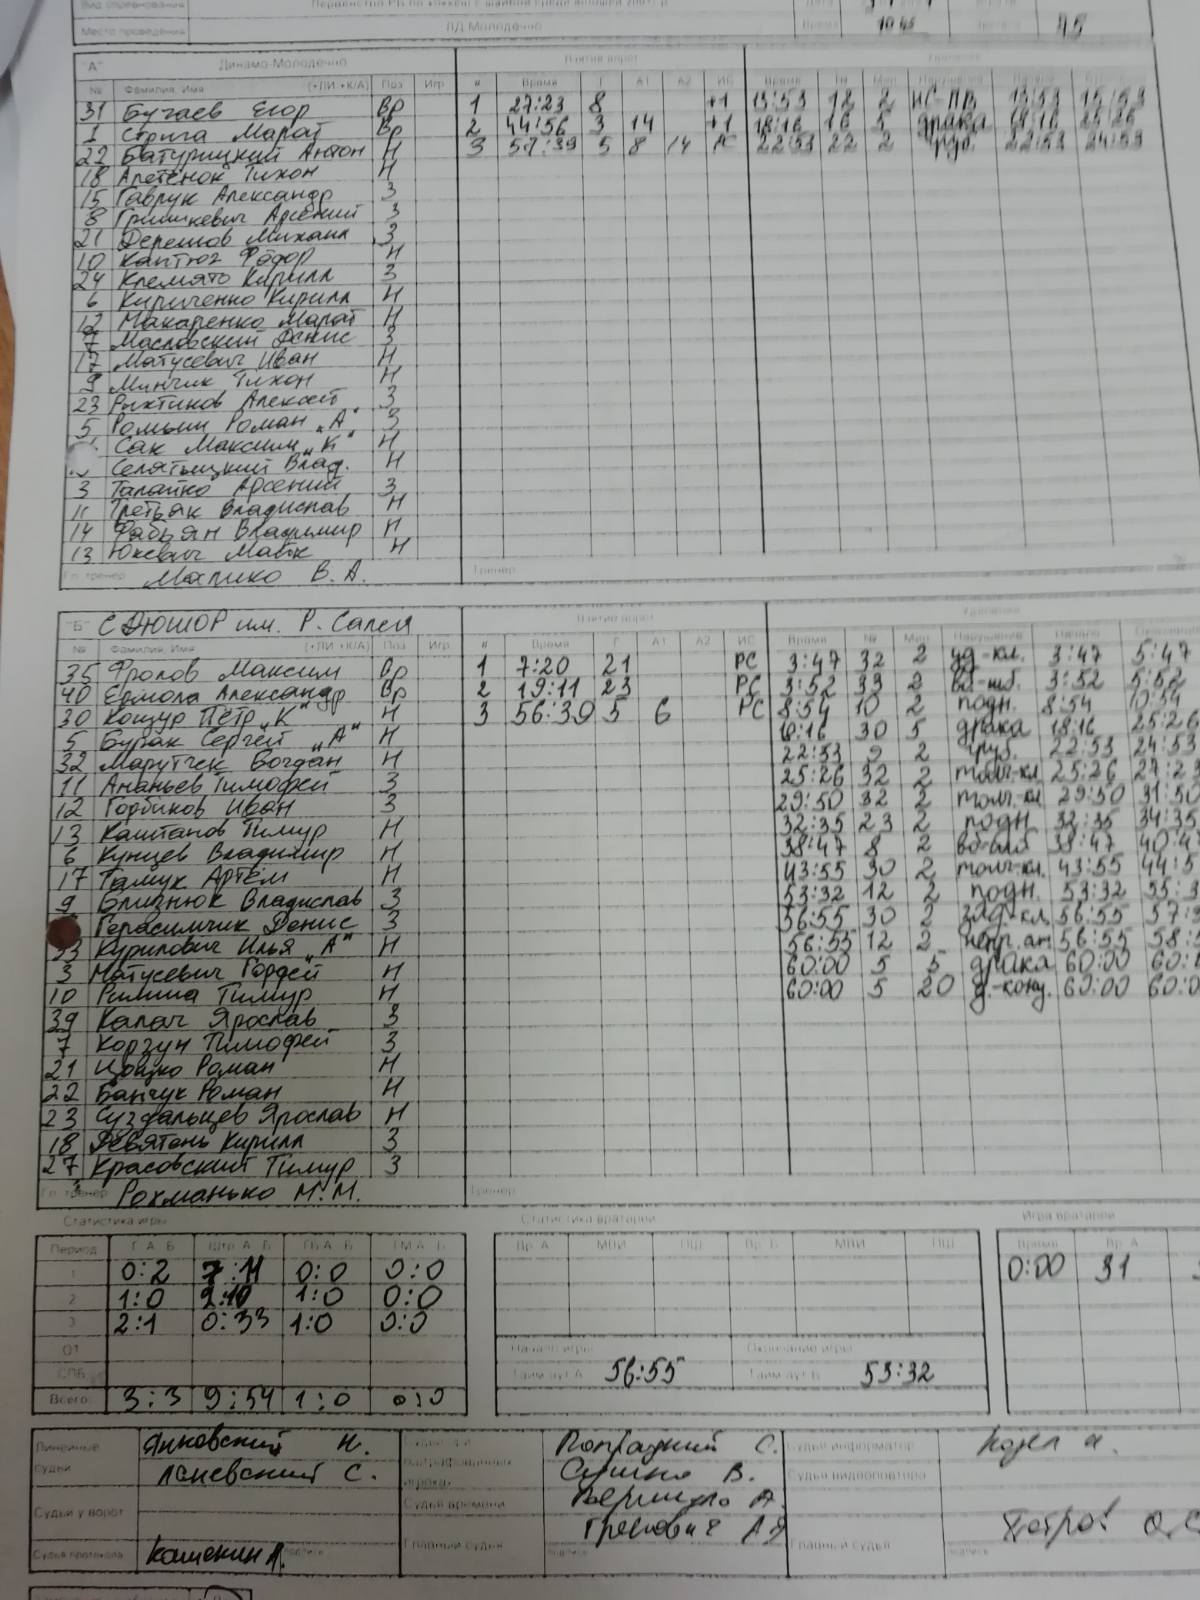 Место проведения ЛД Молодечно 45
"А" Динамо-Молодечно Взятие ворот
№ Фамилия, Имя (+ЛИ +К/А) Поз Игр # Время Г А1 А2 ИС Время № Мин
31 Бучаев Егор Вр 1 27:23 8 +1 13:53 12 2 13:53 15:53
1 Стрига Марат Вр 2 44:56 3 14 +1 18:16 16 5 драка 18:16 25:26
22 Батурицкий Антон Н 3 57:39 5 8 14 РС 22:53 22 2 груб. 22:53 24:53
18 Апетёнок Тихон Н
15 Гаврук Александр З
8 Гришкевич Арсений З
21 Дерешов Михаил З
10 Каптюг Фёдор Н
24 Клемято Кирилл З
6 Кириченко Кирилл Н
12 Макаренко Марат Н
7 Масловский Денис З
17 Матусевич Иван Н
9 Минчик Тихон Н
23 Рыхтиков Алексей З
5 Ромын Роман „А" З
Сак Максим „К" Н
Селятыцкий Влад. Н
3 Талайко Арсений З
11 Третьяк Владислав Н
14 Фабьян Владимир Н
13 Юкевич Марк Н
Гл. тренер Малико В. А. Тренер
"Б" СДЮШОР им. Р. Салея Взятие ворот Удаления
№ Фамилия, Имя (+ЛИ +К/А) Поз Игр # Время Г А1 А2 ИС Время № Мин Нарушение Начало
35 Фролов Максим Вр 1 7:20 21 РС 3:47 32 2 уд-кл. 3:47 5:47
40 Ермола Александр Вр 2 19:11 23 РС 3:52 39 2 3:52 5:52
30 Кощур Пётр „К" Н 3 56:39 5 6 РС 8:54 10 2 подн. 8:54 10:54
5 Бурак Сергей „А" Н 18:16 30 5 драка 18:16 25:26
32 Марутчек Богдан Н 22:53 9 2 груб. 22:53 24:53
11 Ананьев Тимофей З 25:26 32 2 толч-кл 25:26 27:23
12 Горбиков Иван З 29:50 32 2 толч-кл 29:50 31:50
13 Каштанов Тимур Н 32:35 23 2 подн 32:35 34:35
6 Кунцев Владимир Н 38:47 8 2 38:47 40:4
17 Тамук Артём Н 43:55 30 2 толч-кл. 43:55 44:5
9 Близнюк Владислав З 53:32 12 2 подн. 53:32 55:3
Герасимчик Денис З 56:55 30 2 56:55 57:
33 Курилович Илья „А" Н 56:55 12 2 56:55 58:5
3 Матусевич Гордей Н 60:00 5 5 драка 60:00 60:
10 Римша Тимур Н 60:00 5 20 д.-конц. 60:00 60:0
39 Калач Ярослав З
7 Корзун Тимофей З
21 Цойко Роман Н
22 Банчук Роман Н
23 Суздальцев Ярослав Н
18 Девятень Кирилл З
27 Красовский Тимур З
Гл. тренер Рохманько М. М. Тренер
Статистика игры Статистика вратарей Игра вратарей
Период Г А Б Штр А Б ГБ А Б ГМ А Б Вр А МВИ ПШ Вр Б МВИ ПШ Время Вр А
1 0:2 7:11 0:0 0:0 0:00 31
2 1:0 2:10 1:0 0:0
3 2:1 0:33 1:0 0:0
ОТ Начало игры Окончание игры
Тайм аут А 56:55 Тайм аут Б 53:32
Всего: 3:3 9:54 1:0 0:0
Линейные судьи Янковский Н. Попрадний С. Судья информатор
Ланевский С. Сушко В. Судья видеоповтора
Судьи у ворот Судья времени
Судья протокола Каменин А. Главный судья Гренович Главный судья Петров